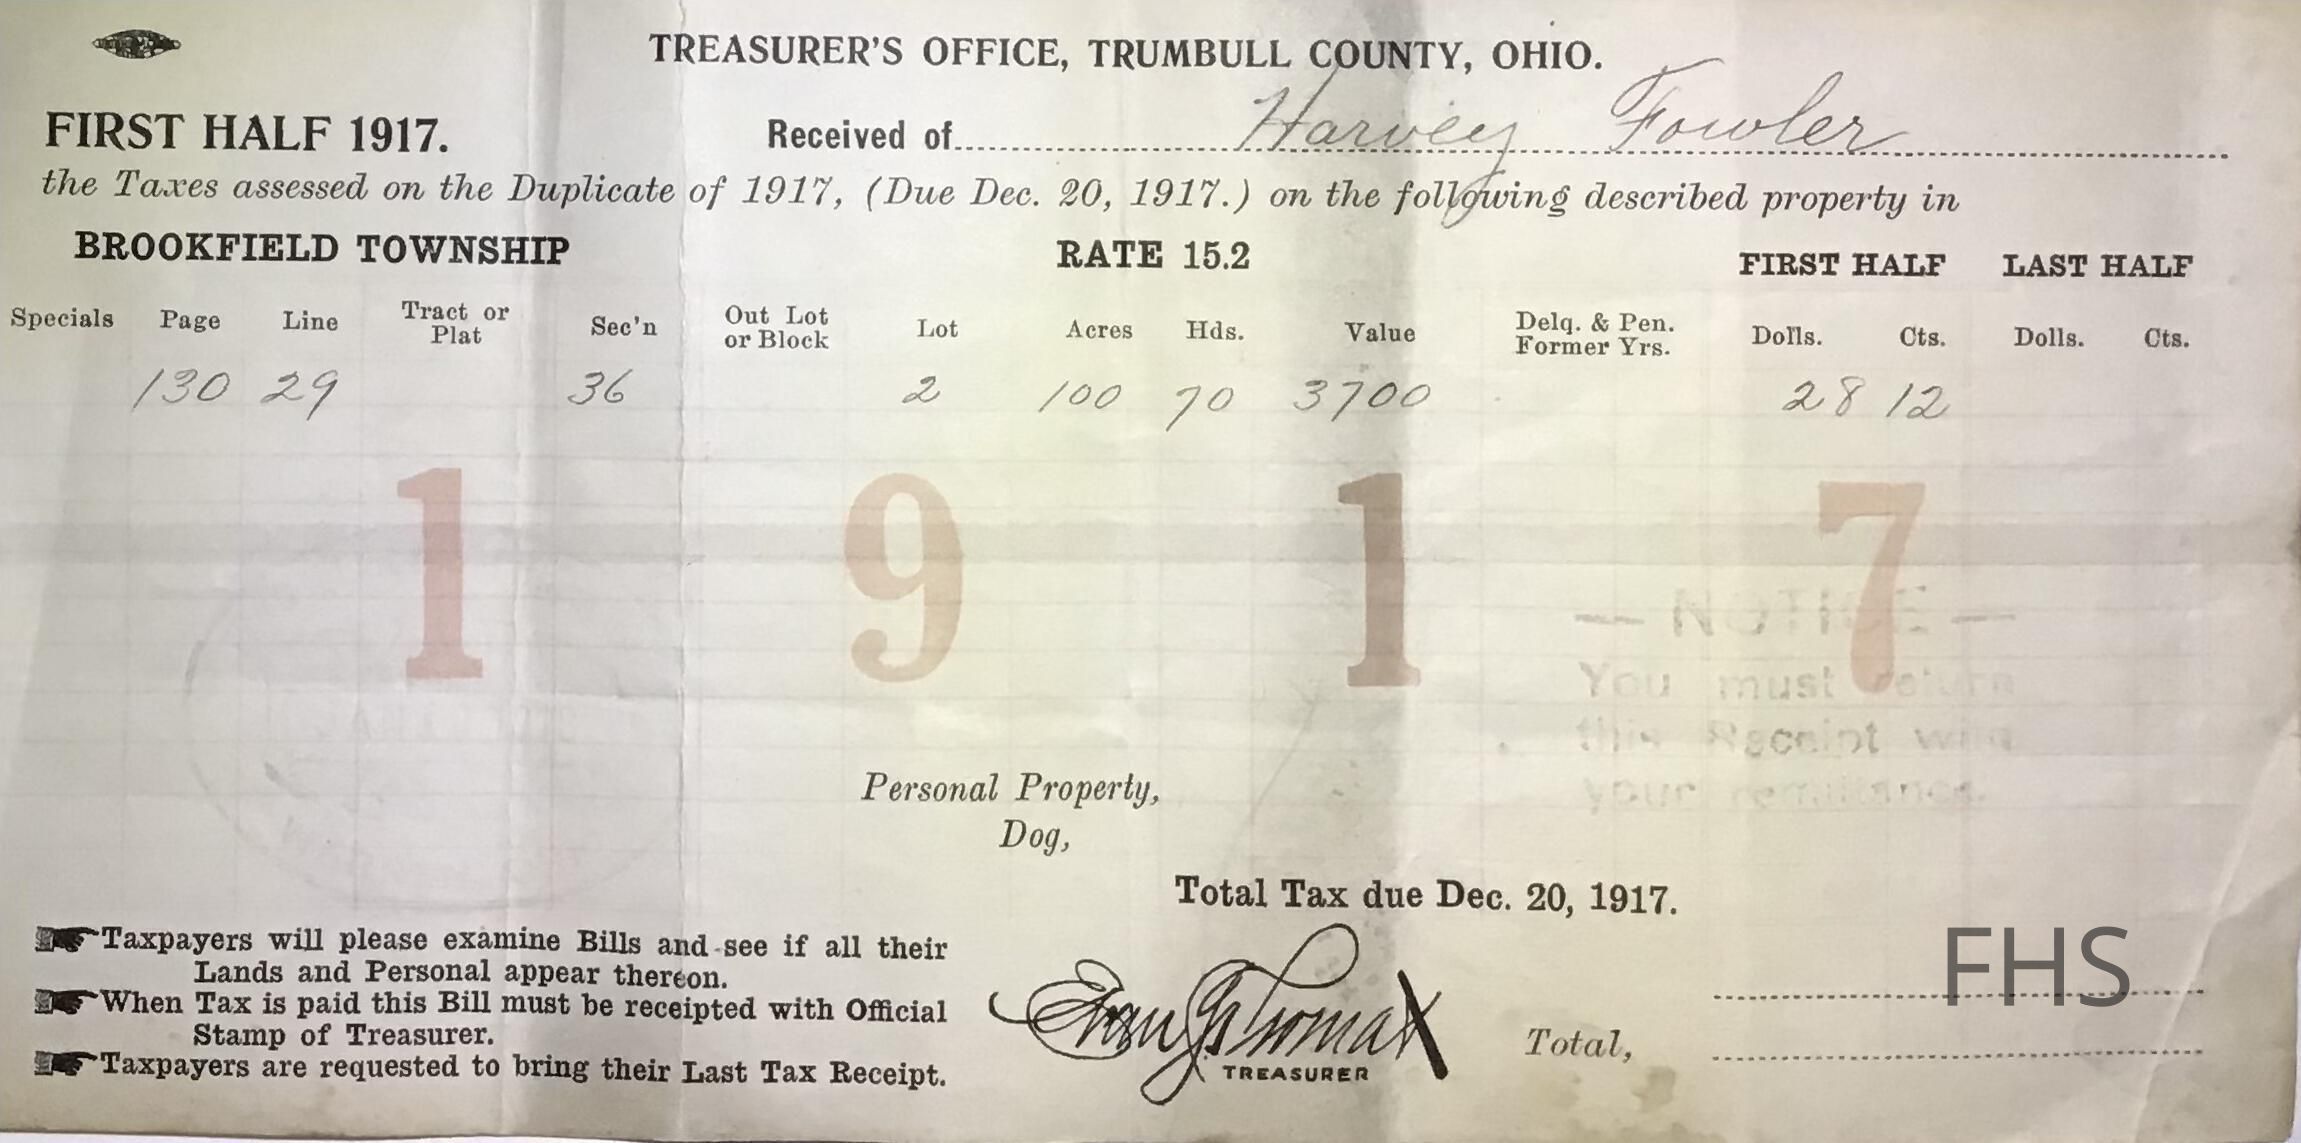 TREASURER'S OFFICE, TRUMBULL COUNTY, OHIO.
FIRST HALF 1917. Received of Harvey Fowler
the Taxes assessed on the Duplicate of 1917, (Due Dec. 20, 1917.) on the following described property in
BROOKFIELD TOWNSHIP RATE 15.2 FIRST HALF LAST HALF
Specials Page Line Tract or Plat Sec'n Out Lot or Block Lot Acres Hds. Value Delq. & Pen. Former Yrs. Dolls. Cts. Dolls. Cts.
130 29 36 2 100 70 3700 28 12
1 9 1 7
— NOTICE —
You must return
this Receipt with
your remittance.
Personal Property,
Dog,
Total Tax due Dec. 20, 1917.
Taxpayers will please examine Bills and see if all their
Lands and Personal appear thereon.
When Tax is paid this Bill must be receipted with Official
Stamp of Treasurer.
Taxpayers are requested to bring their Last Tax Receipt.
TREASURER
Total,
FHS